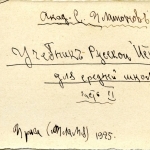 Акад. С. Платоновъ
Учебникъ Русской Ис
для средней шко
часть II
Прага 1925.